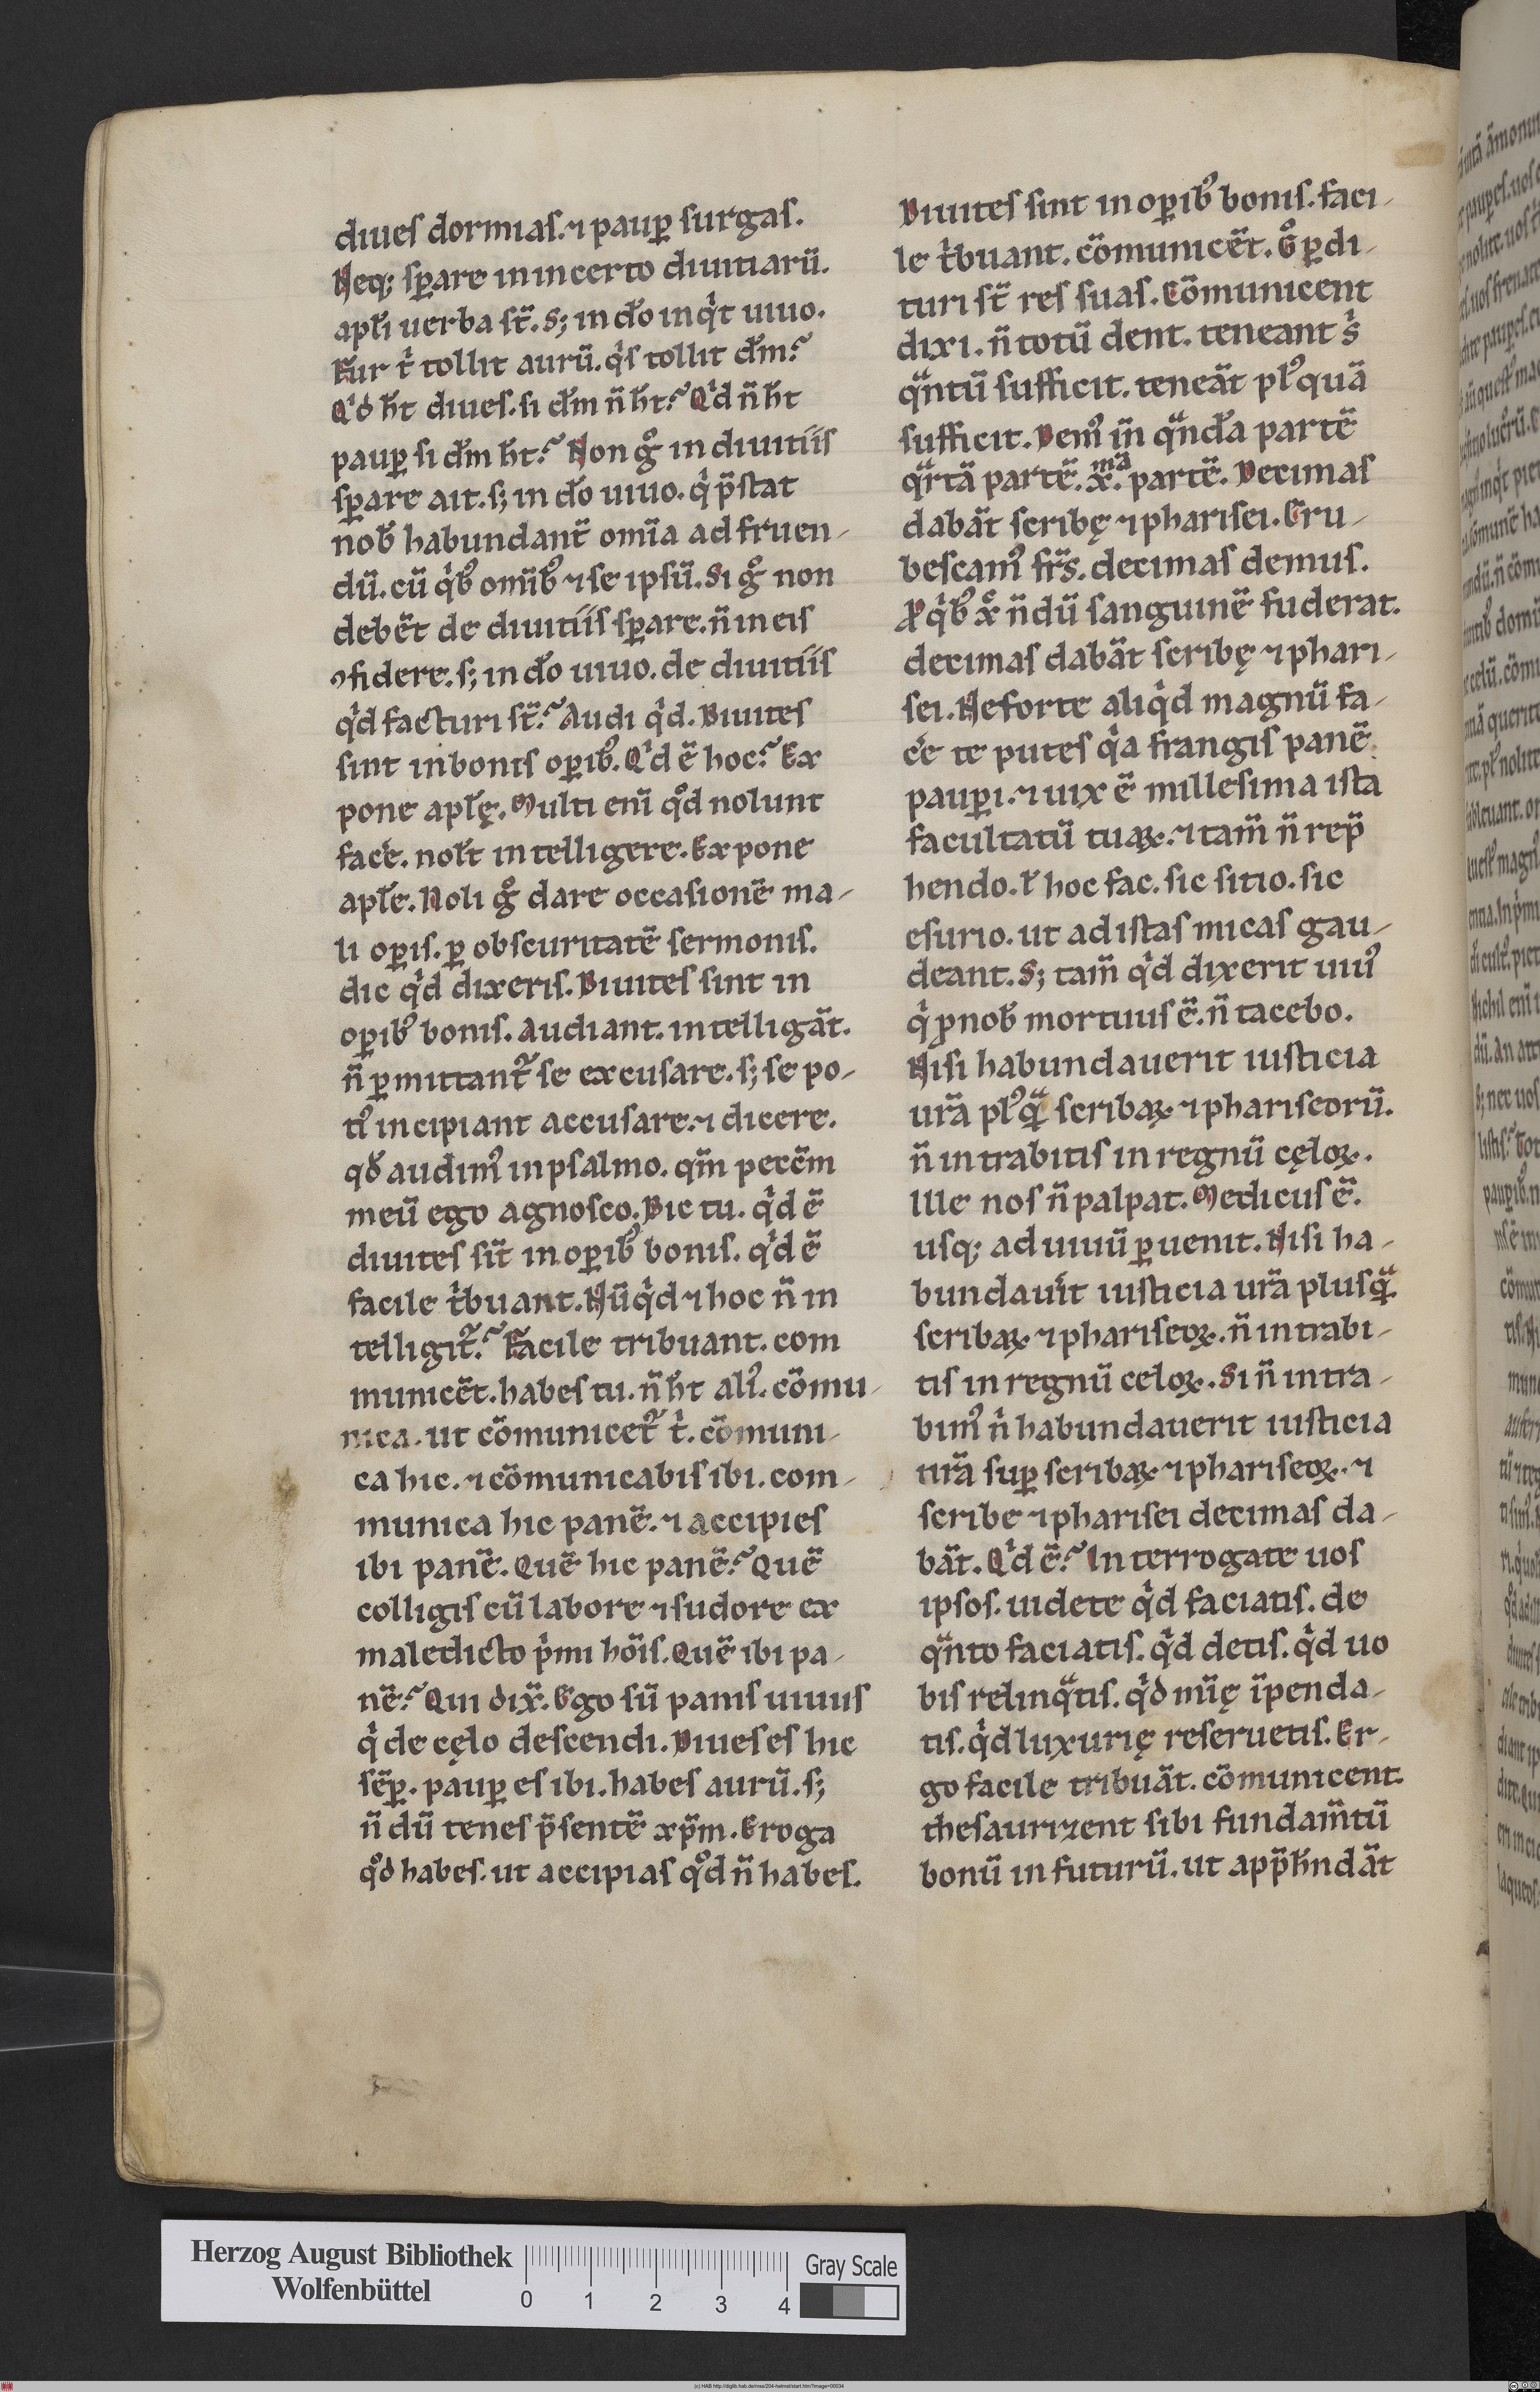 diues dormias. ⁊ paup̲ surgas.
Neq; sp̲are in incerto diuitiarū.
apl̄i uerba st̄. S; in dō inqͥt uiuo.
Fur tͥ tollit aurū. qͥs tollit dm̄?
Qͥd h̄t diues. si dm̄ n̄ h̄t? Qͥd n̄ h̄t
paup̲ si dm̄ h̄t? Non gͦ in diuitiis
sp̲are ait. s; in dō uiuo. qͥ p̄stat
nob̄ habundant̄ om̄ia ad fruen-
dū. cū qͥbꝰ om̄ibꝰ ⁊ se ipsū. Si gͦ non
debēt de diuitiis sp̲are. n̄ in eis
ꝯfidere. s; in dō uiuo. de diuitiis
qͥd facturi st̄? Audi qͥd. Diuites
sint in bonis op̲ibꝰ. Qͥd ē hoc? Ex
pone apl̄ę. Multi enī qͦd nolunt
facēe. nol̄t intelligere. Expone
apl̄e. Noli gͦ dare occasionē ma-
li op̲is. p̲ obscuritatē sermonis.
dic qͥd dixeris. Diuites sint in
op̲ibꝰ bonis. Audiant. intelligāt.
n̄ p̲mittant᷑ se excusare. s; se po-
tiꝰ incipiant accusare. ⁊ dicere.
qd̄ audimꝰ in psalmo. qm̄ peccm̄
meū ego agnosco. Dic tu. qͥd ē
diuites sīt in op̲ibꝰ bonis. qͥd ē
facile tͥbuant. Nūqͥd ⁊ hoc n̄ in
telligit᷑? Facile tribuant. com
municēt. habes tu. n̄ h̄t aliꝰ. cōmu-
nica. ut cōmunicet᷑ tͥ. cōmuni-
ca hic. ⁊ cōmunicabis ibi. com-
munica hic panē. ⁊ accipies
ibi panē. Quē hic panē? Quē
colligis cū labore ⁊ sudore ex
maledicto pͥmi hōis. Quē ibi pa-
nē? Qui dix̄. Ego sū panis uiuus
qͥ de cęlo descendi. Diues es hic
sēp̲. paup̲ es ibi. habes aurū. s;
n̄dū tenes p̄sentē xp̄m. Eroga
qͦd habes. ut accipias qͦd n̄ habes.
Diuites sint in op̲ibꝰ bonis. faci-
le tͥbuant. cōmunicēt. Gͦ p̲di-
turi st̄ res suas. Cōmunicent
dixi. n̄ totū dent. teneant sͥ
qͣntū sufficit. teneāt plꝰquā
sufficit. Demꝰ in̄ qͣndā partē
qͣrtā partē. x.ᵐᵃ partē. Decimas
dabāt scribę ⁊ pharisei. Eru-
bescamꝰ fr̄s. decimas demus.
P̱ qͥbꝰ xͦ n̄dū sanguinē fuderat.
decimas dabāt scribę ⁊ phari-
sei. Ne forte aliqͥd magnū fa-
cēe te putes qͥa frangis panē
paup̲i. ⁊ uix ē millesima ista
facultatū tuaꝝ. ⁊ tam̄ n̄ rep̄
hendo. ł hoc fac. sic sitio. sic
esurio. ut ad istas micas gau-
deant. S; tam̄ qͥd dixerit uiuꝰ
qͥ ꝓ nob̄ mortuus ē. n̄ tacebo.
Nisi habundauerit iusticia
ur̄a plꝰqͣ scribaꝝ ⁊ phariseorū.
n̄ intrabitis in regnū cęloꝝ.
Ille nos n̄ palpat. Medicus ē.
usq; ad uiuū p̲uenit. Nisi ha-
bundauit̄ iusticia ur̄a plusqͣ
scribaꝝ ⁊ phariseoꝝ. n̄ intrabi-
tis in regnū celoꝝ. Si n̄ intra-
bimꝰ nͥ habundauerit iusticia
nr̄a sup̲ scribaꝝ ⁊ phariseoꝝ. ⁊
scribe ⁊ pharisei decimas da-
bāt. Qͥd ē? Interrogate uos
ipsos. uidete qͥd faciatis. de
qͣnto faciatis. qͥd detis. qͥd uo
bis relinqͣtis. qͥd mi͞ę īpenda-
tis. qͥd luxurię reseruetis. Er-
go facile tribuāt. cōmunicent.
thesaurizent sibi fundam̄tū
bonū in futurū. ut app̄h̄ndāt
Herzog August Bibliothek
Wolfenbüttel
0 1 2 3 4
Gray Scale
(c) HAB http://diglib.hab.de/mss/204-helmst/start.htm?image=00034